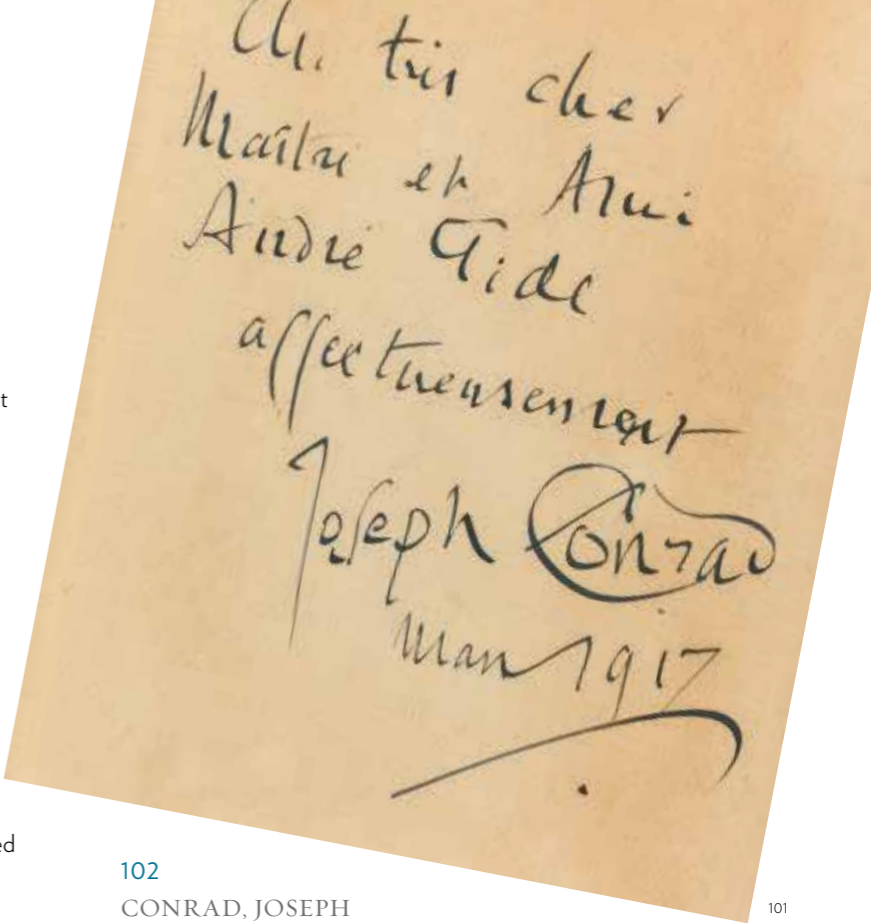 Au très cher
Maître et Ami
André Gide
affectueusement
Joseph Conrad
Mars 1917
t
ed
102
CONRAD, JOSEPH
101